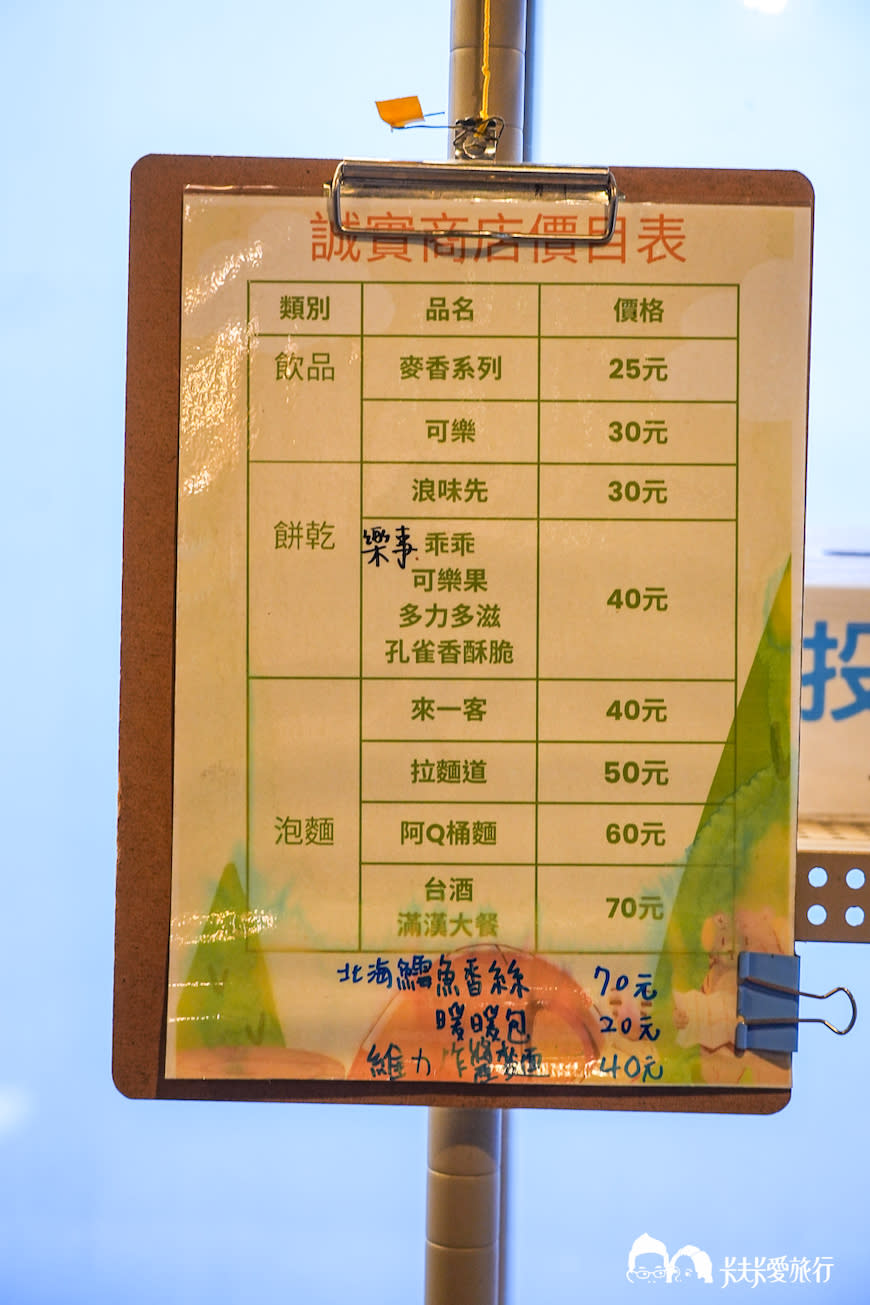 誠實商店價目表
類別 品名 價格
飲品 麥香系列 25元
可樂 30元
餅乾 浪味先 30元
樂事 乖乖
可樂果
多力多滋
孔雀香酥脆
40元
泡麵 來一客 40元
拉麵道 50元
阿Q桶麵 60元
台酒
滿漢大餐
70元
北海鱈魚香絲 70元
暖暖包 20元
維力 炸醬麵 40元
投
卡夫卡愛旅行